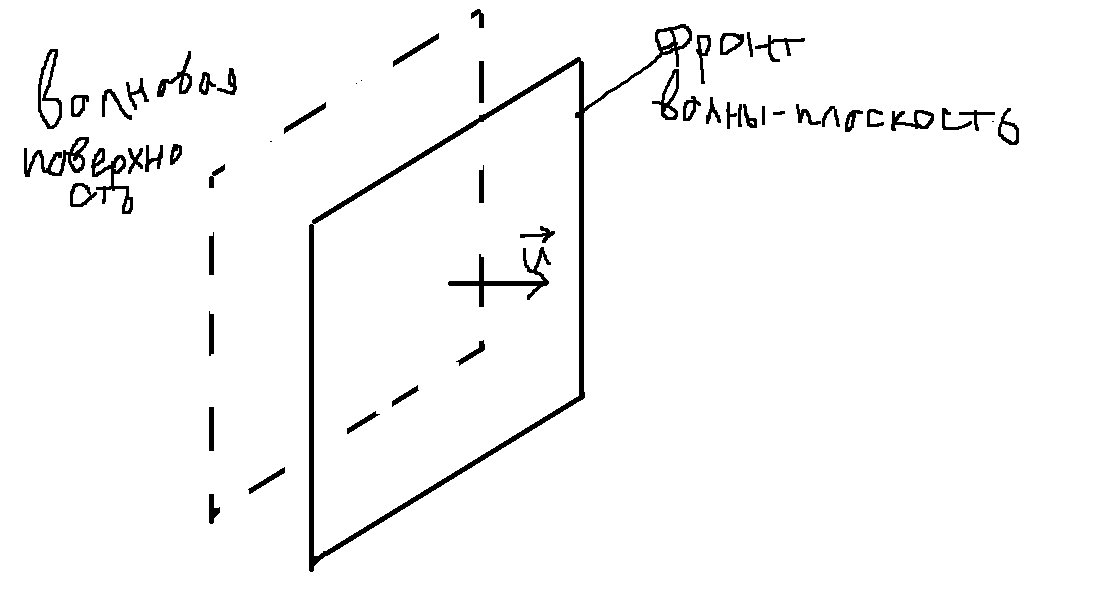 Волновая
поверхно
сть
Фронт
волны-плоскость
u